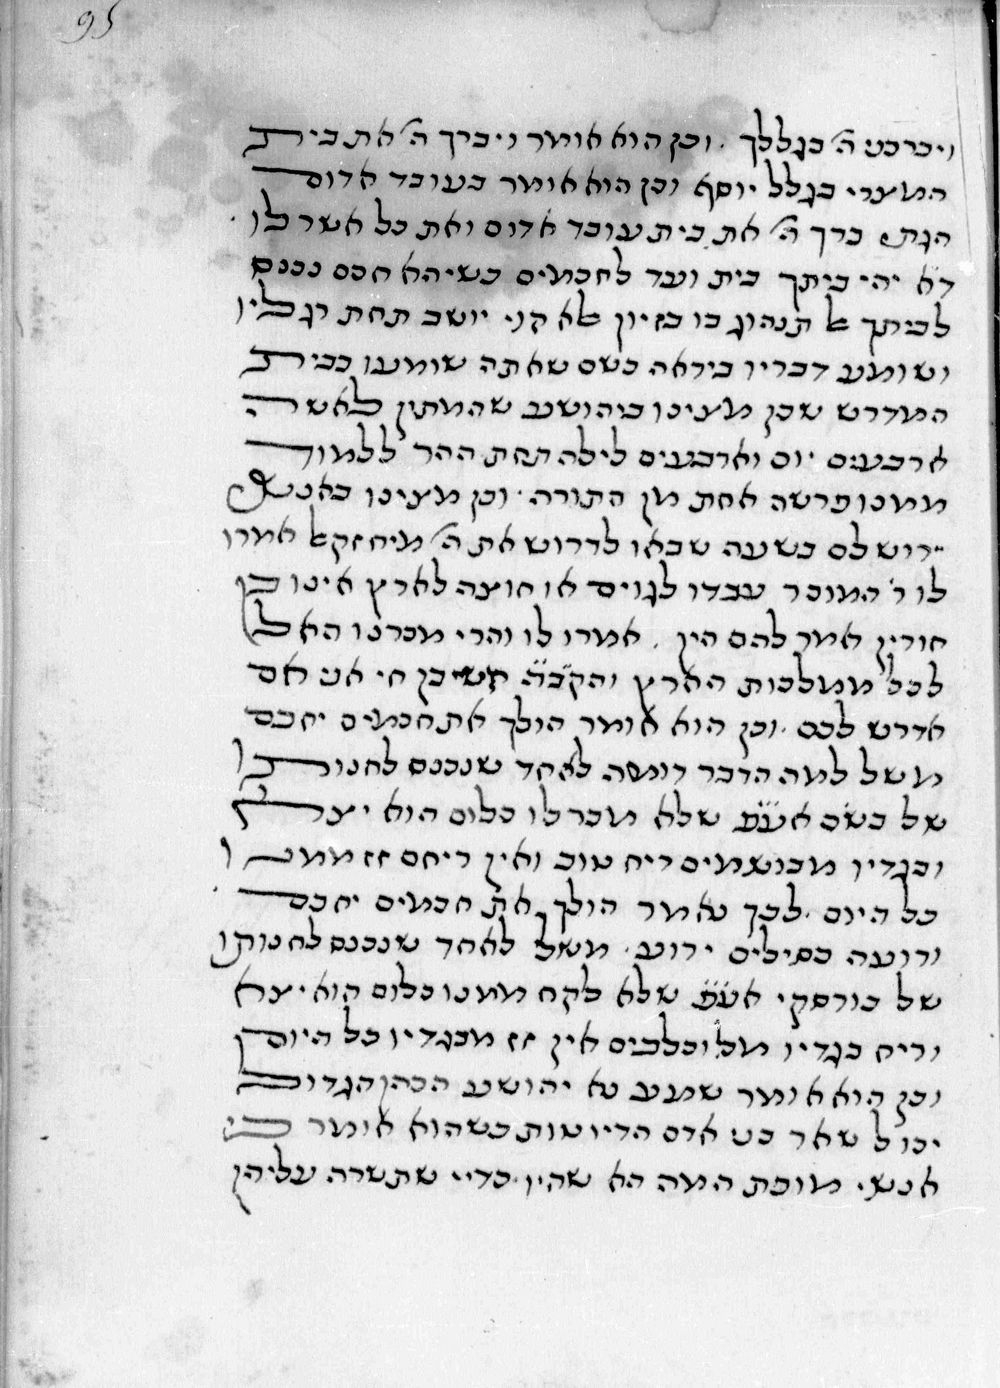 95
ויברכני ה' בגללך . וכן הוא אומר ויברך ה' את בית
המצרי בגלל יוסף וכן הוא אומר בעובד אדום
הגתי ברך ה' את בית עובד אדום ואת כל אשר לו .
ד"א יהי ביתך בית ועד לחכמים כשיהא חכם נכנס
לביתך אל תנהוג בו בזיון אלא קני יושב תחת רגליו
ושומע דבריו ביראה כשם שאתה שומען בבית
המדרש שכן מצינו ביהושע שהמתין למשה
ארבעים יום וארבעים לילה תחת ההר ללמוד
ממנו פרשה אחת מן התורה . וכן מצינו באנשי
ירושלם בשעה שבאו לדרוש את ה' מיחזקאל אמרו
לו ר' המוכר עבדו לגוים או חוצה לארץ אינו בן
חורין אמר להם הין . אמרו לו והרי מכרנו האל
לכל ממלכות הארץ והקב"ה חי אני אם
אדרש לכם . וכן הוא אומר הולך את חכמים יחכם
משל למה הדבר דומה לאחד שנכנס לחנותו
של בשם אע"פ שלא מכר לו כלום הוא יצא
ובגדיו מבושמים ריח טוב ואין ריחם זז ממנו
כל היום . לכך נאמר הולך את חכמים יחכם .
ורועה כסילים ירוע . משל לאחד שנכנס לחנותו
של בורסקי אע"פ שלא לקח ממנו כלום הוא יצא
וריח בגדיו מלוכלכים אין זז מבגדיו כל היום
וכן הוא אומר שמע נא יהושע הכהן הגדול
יכול שאר בני אדם הדיוטות כשהוא אומר כי
אנשי מופת המה הא שהיו כדיי שתשרה עליהן